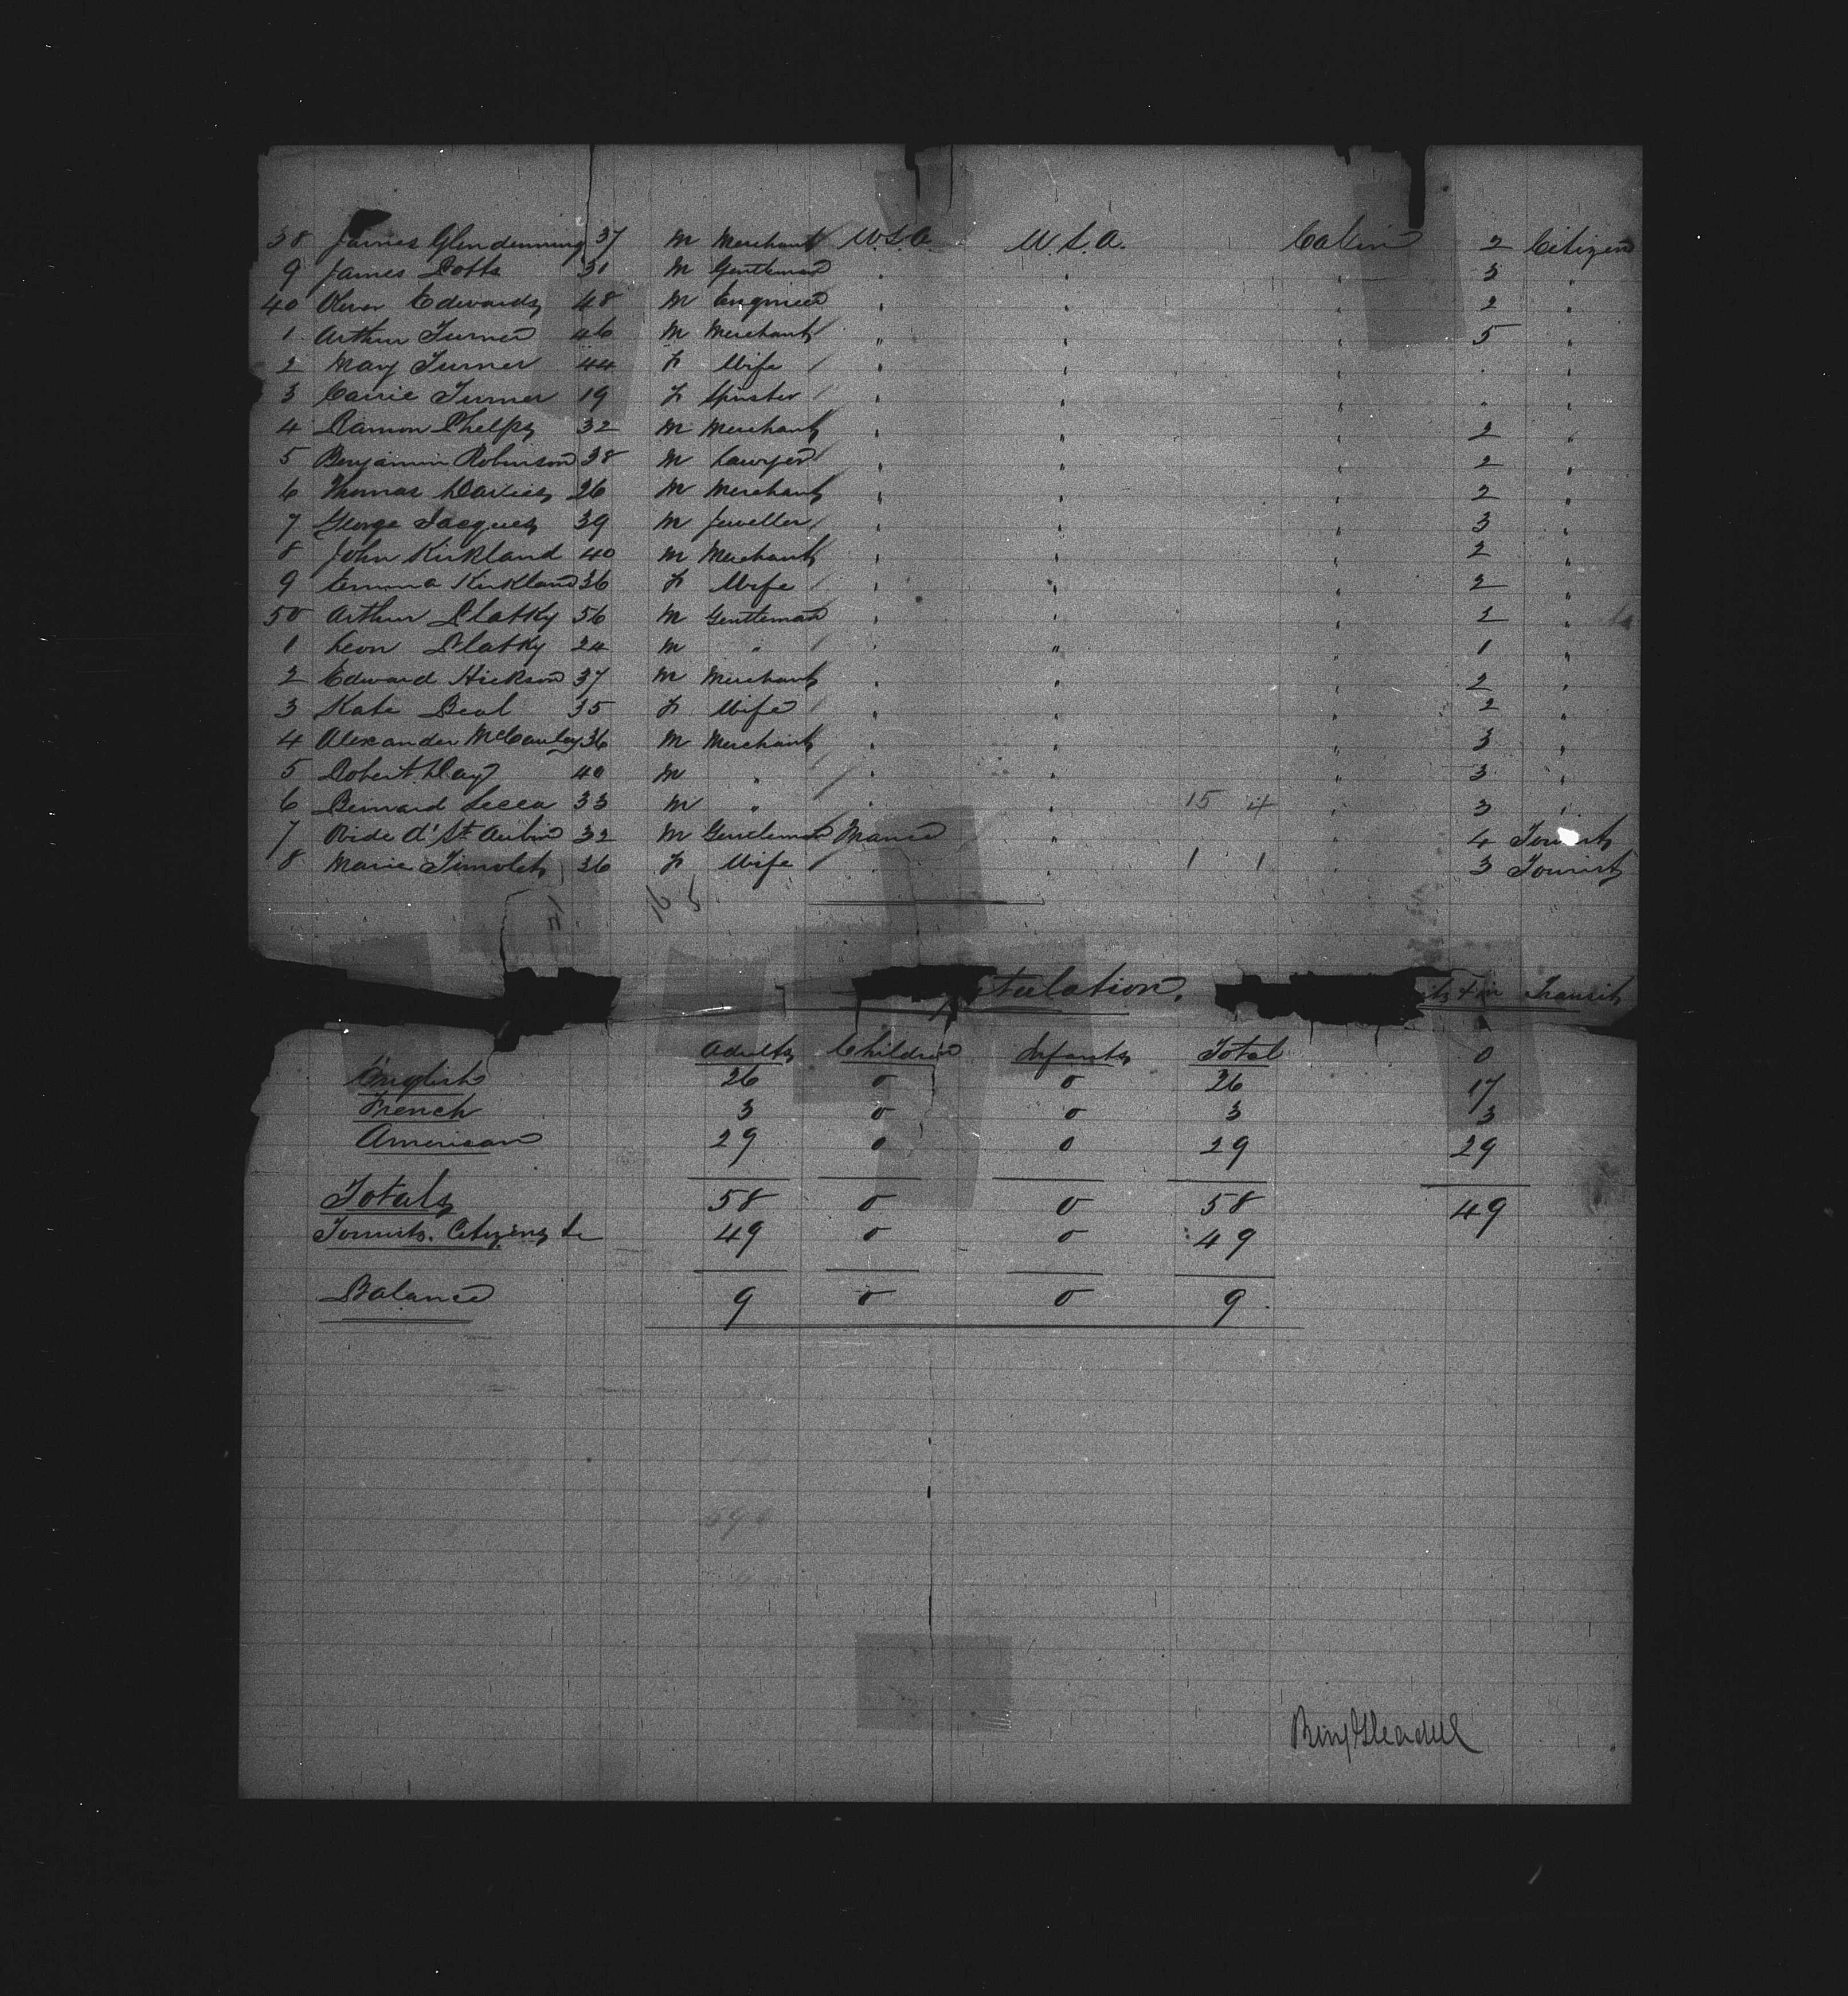 38 James Glendenning 37 M Merchant U.S.A. U.S.A. Cabin 2 Citizen
9 James Potts 31 M Gentleman " " " 3 "
40 Oliver Edwards 48 M Engineer " " " 2 "
1 Arthur Turner 46 M Merchant " " " 5 "
2 Mary Turner 44 F Wife " " " " "
3 Carrie Turner 19 F Spinster " " " " "
4 Ramon Phelps 32 M Merchant " " " 2 "
5 Benjamin Robinson 38 M Lawyer " " " 2 "
6 Thomas Davies 26 M Merchant " " " 2 "
7 George Jacques 39 M Jeweller " " " 3 "
8 John Kirkland 40 M Merchant " " " 2 "
9 Emma Kirkland 36 F Wife " " " 2 "
50 Arthur Platky 56 M Gentleman " " " 2 "
1 Leon Platky 24 M " " " " 1 "
2 Edward Hickson 37 M Merchant " " " 2 "
3 Kate Beal 35 F Wife " " " 2 "
4 Alexander McCauley 36 M Merchant " " " 3 "
5 Robert Day 40 M " " " " 3 "
6 Bernard 33 M " " " 15 4 " 3 "
7 d' St Aubin 32 M Gentleman France " " 4 Tourist
8 Marie 36 F Wife " " 1 1 " 3 Tourist
16 5
itulation. & in Transit
Adults Children Infants Total 0
English 26 0 0 26 17
French 3 0 0 3 3
American 29 0 0 29 29
Totals 58 0 0 58 49
Tourists, Citizens &c 49 0 0 49
Balance 9 0 0 9
Benj Gleadell